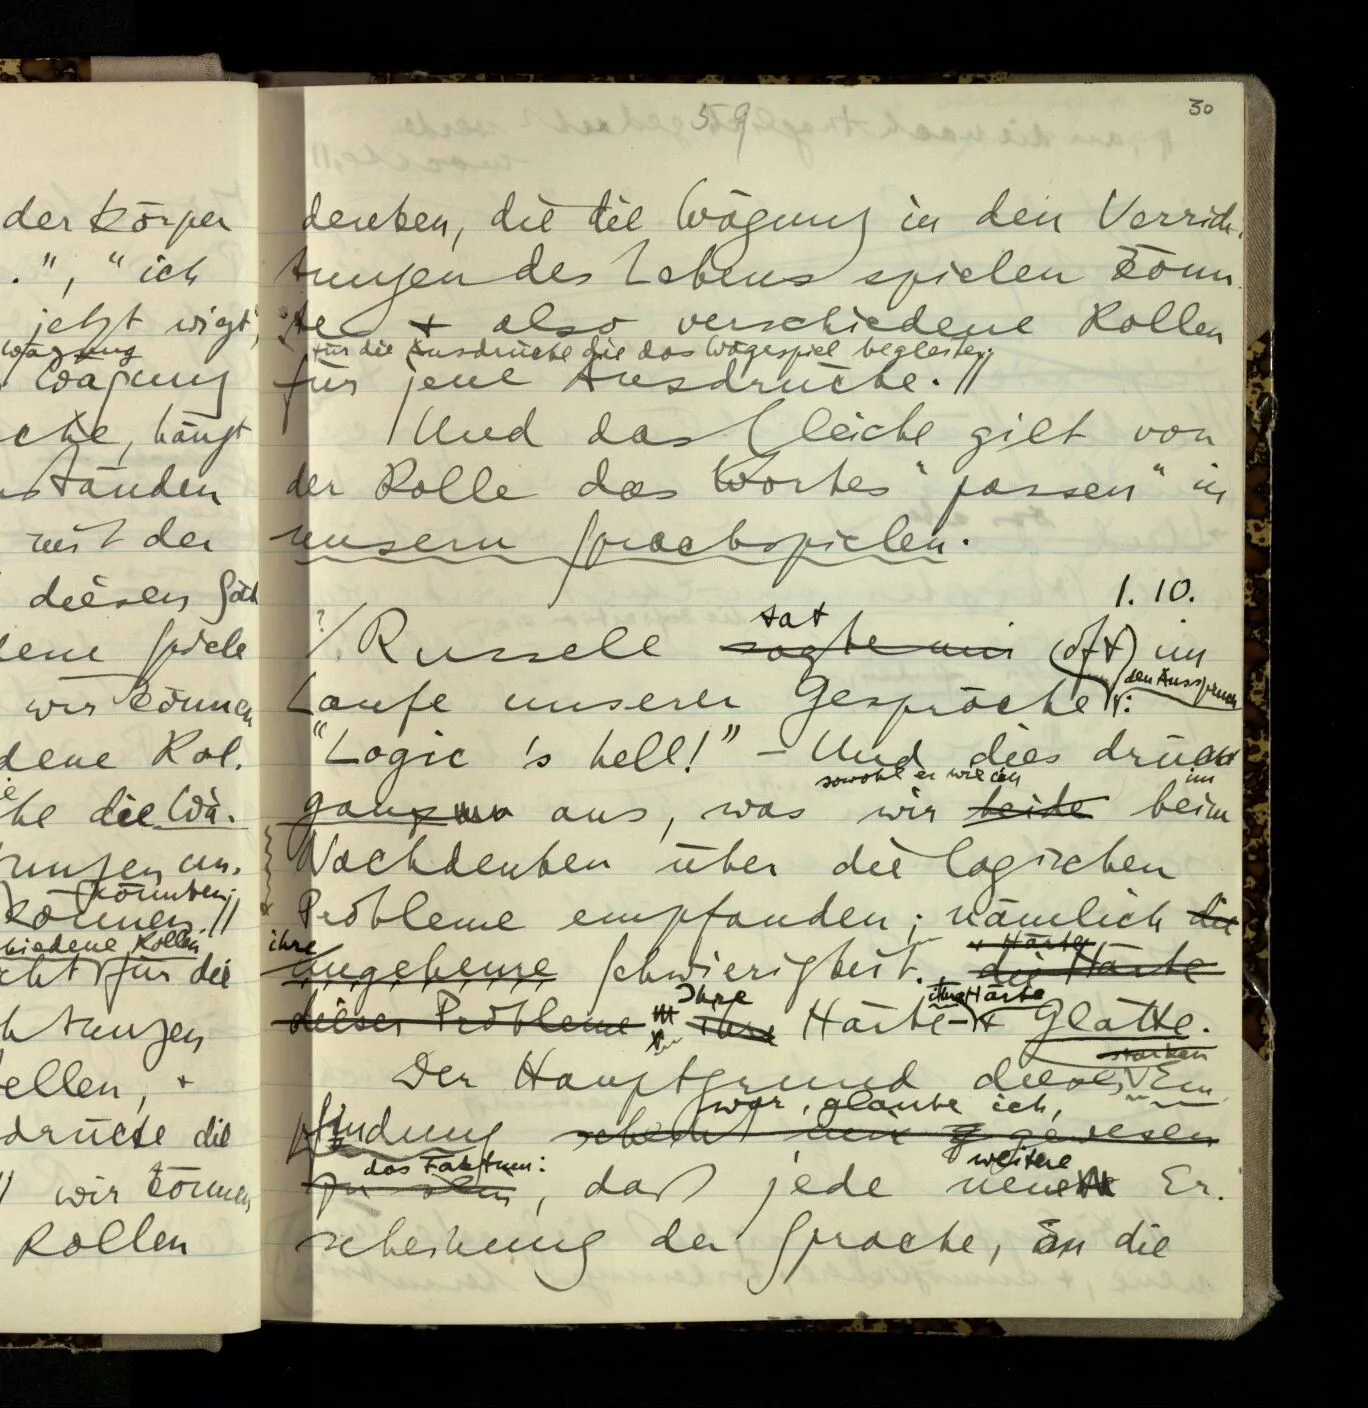 der Körper
.", "ich
jetzt wiegt",
Wägung
Wägung
che, hängt
ständen
mit der
diesen
Spiele
wir können
dene Rol-
he die Wä-
könnten;
können."
hiedene Rollen
cht für die
ellen, +
drücke die
" wir können
Rollen
59
30
denken, die die Wägung in den Verrich-
tungen des Lebens spielen könn-
te + also verschiedene Rollen
für die Ausdrücke die das Wägespiel begleiten;
für jene Ausdrücke."
Und das Gleiche gilt von
der Rolle des Wortes "passen" in
unsern Sprachspielen.
1. 10.
?/ Russell tat
sagte mir (oft) im
den Ausspruch
Laufe unserer Gespräche:
"Logic 's hell!" – Und dies drückt
sowohl er wie ich im
ganz aus, was wir beide beim
Nachdenken über die logischen
Probleme empfanden; nämlich die
ihre + Härte
ungeheure Schwierigkeit. die Härte
Ihre ihre Härte
dieser Probleme ihre Härte – + Glätte.
starken
Der Hauptgrund dieser Em-
war, glaube ich,
pfindung scheint mir gewesen
das Faktum: weitere
zu sein, daß jede neue Er-
scheinung der Sprache, an die